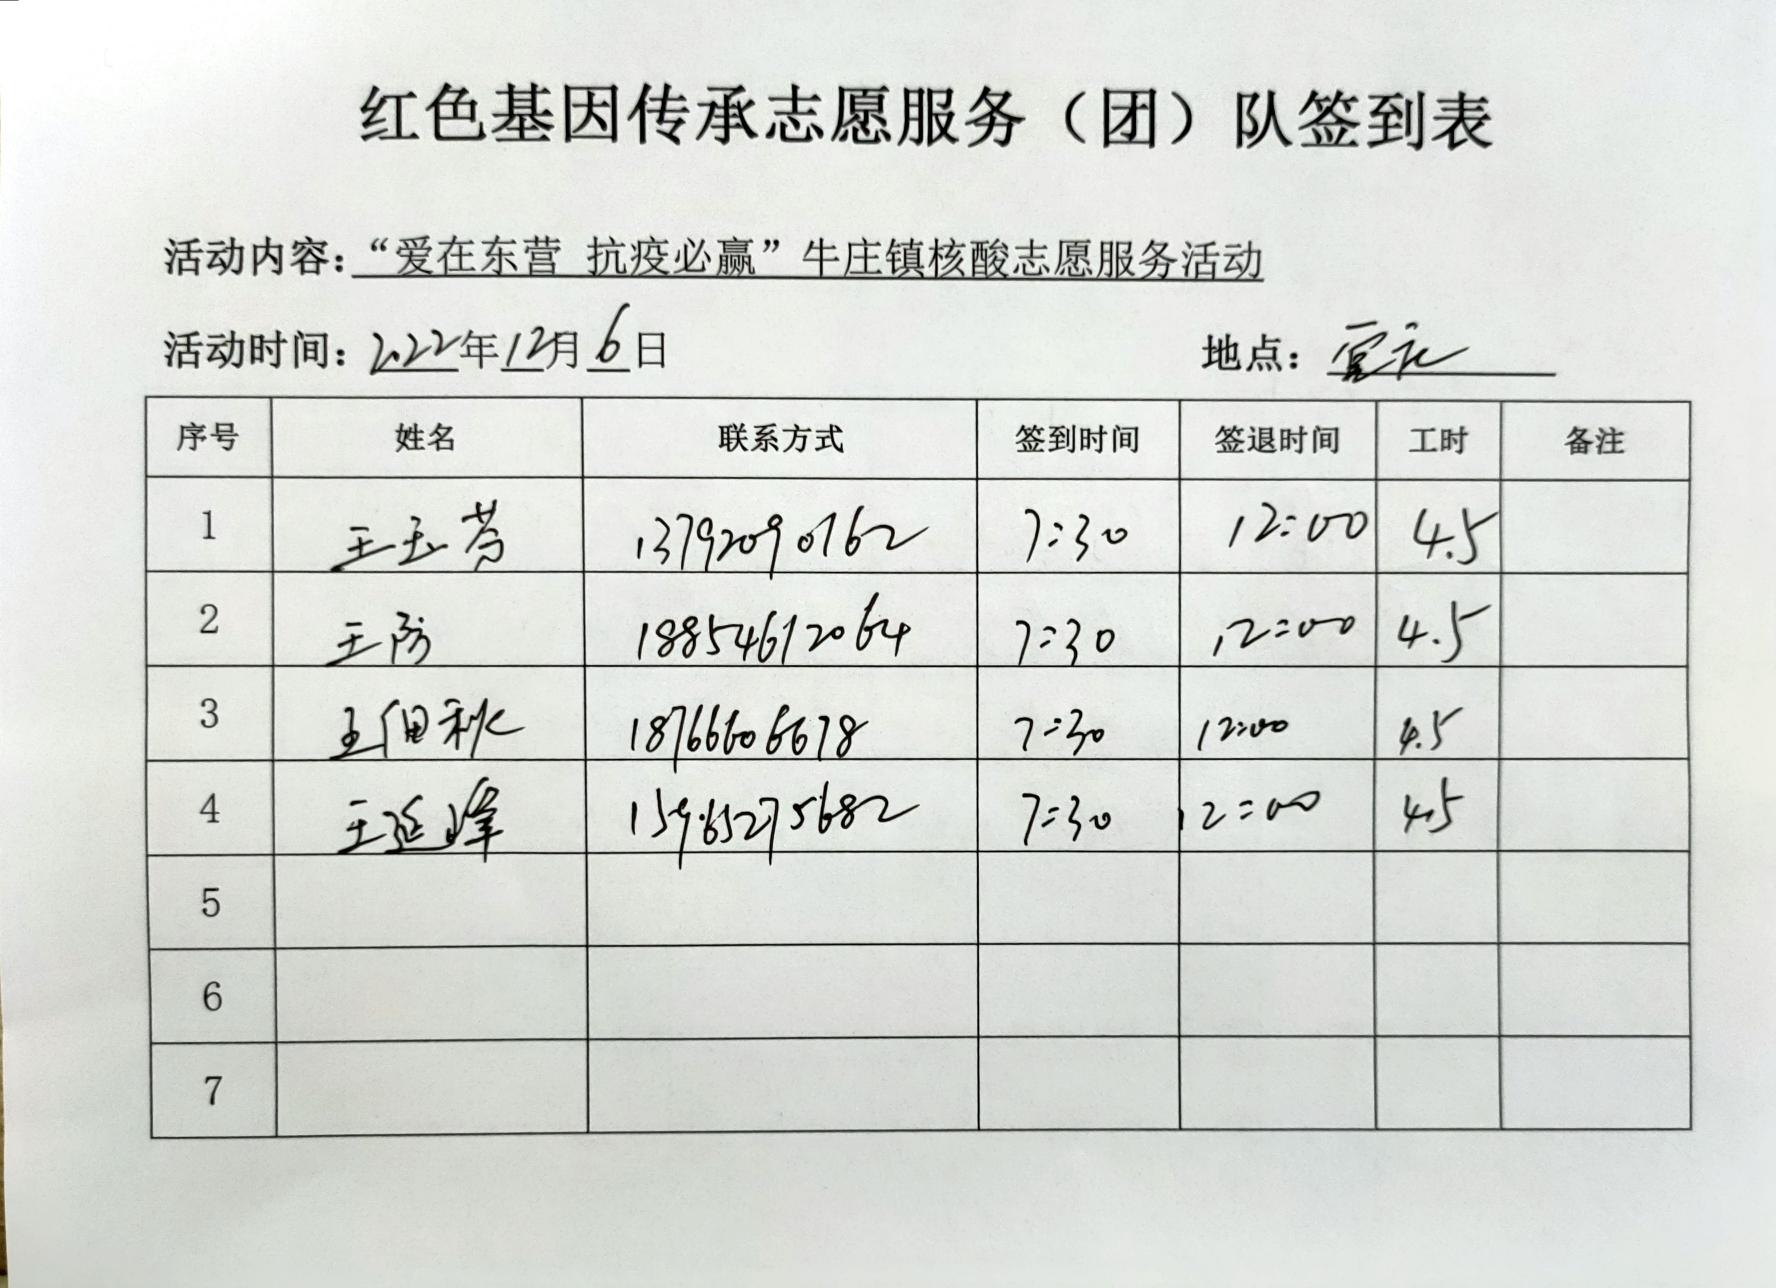 红色基因传承志愿服务（团）队签到表
活动内容：“爱在东营 抗疫必赢”牛庄镇核酸志愿服务活动
活动时间：2022年12月6日 地点：
序号 姓名 联系方式 签到时间 签退时间 工时 备注
1 王玉芳 13792090762 7:30 12:00 4.5
2 王防 18854612064 7:30 12:00 4.5
3 王佃秋 18766606678 7:30 12:00 4.5
4 王延峰 15965275682 7:30 12:00 4.5
5
6
7